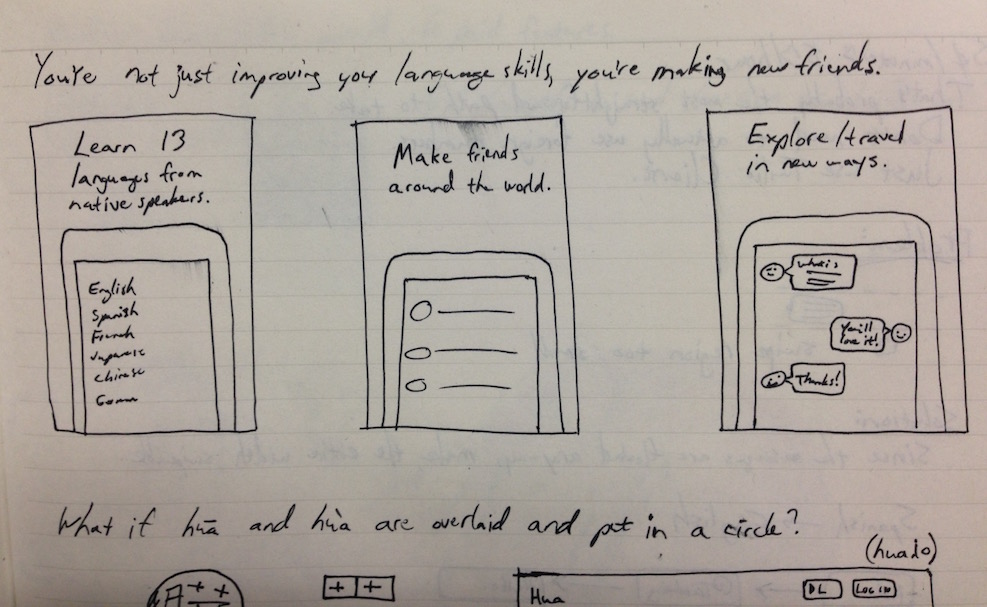 You're not just improving your language skills, you're making new friends.
Learn 13
languages from
native speakers.
English
Spanish
French
Japanese
Chinese
German
Make friends
around the world.
Explore/travel
in new ways.
what's
You'll
love it!
Thanks!
What if huā and huà are overlaid and put in a circle?
(huado)
Hua
DL
LOG IN